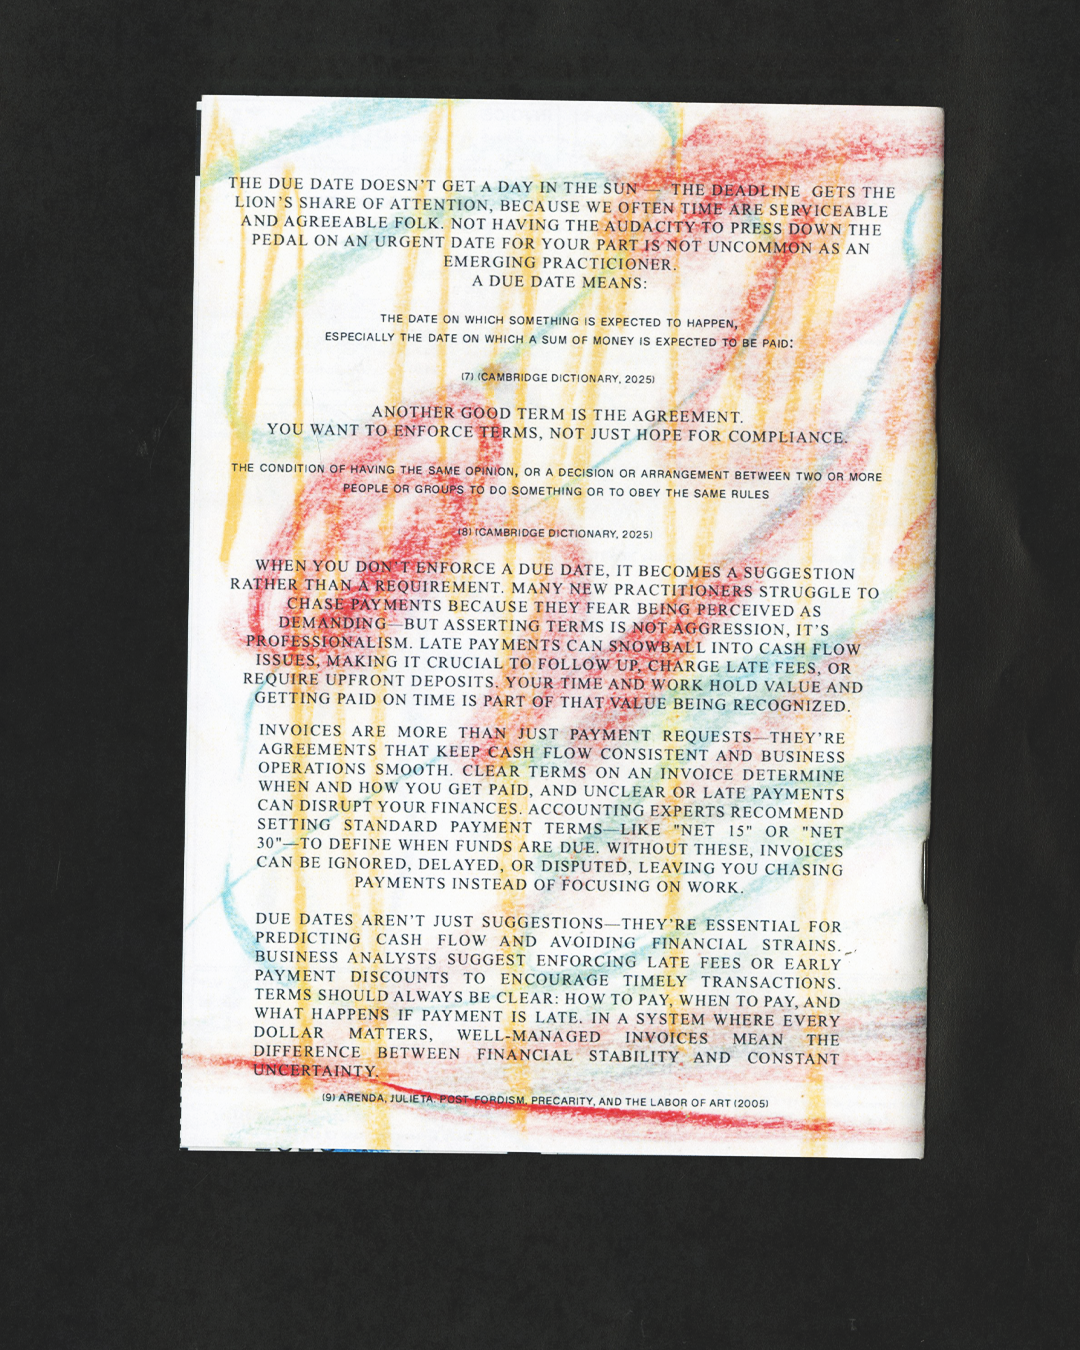 THE DUE DATE DOESN'T GET A DAY IN THE SUN — THE DEADLINE GETS THE
LION'S SHARE OF ATTENTION, BECAUSE WE OFTEN TIME ARE SERVICEABLE
AND AGREEABLE FOLK. NOT HAVING THE AUDACITY TO PRESS DOWN THE
PEDAL ON AN URGENT DATE FOR YOUR PART IS NOT UNCOMMON AS AN
EMERGING PRACTICIONER.
A DUE DATE MEANS:
THE DATE ON WHICH SOMETHING IS EXPECTED TO HAPPEN,
ESPECIALLY THE DATE ON WHICH A SUM OF MONEY IS EXPECTED TO BE PAID:
(7) (CAMBRIDGE DICTIONARY, 2025)
ANOTHER GOOD TERM IS THE AGREEMENT.
YOU WANT TO ENFORCE TERMS, NOT JUST HOPE FOR COMPLIANCE.
THE CONDITION OF HAVING THE SAME OPINION, OR A DECISION OR ARRANGEMENT BETWEEN TWO OR MORE
PEOPLE OR GROUPS TO DO SOMETHING OR TO OBEY THE SAME RULES
(8) (CAMBRIDGE DICTIONARY, 2025)
WHEN YOU DON'T ENFORCE A DUE DATE, IT BECOMES A SUGGESTION
RATHER THAN A REQUIREMENT. MANY NEW PRACTITIONERS STRUGGLE TO
CHASE PAYMENTS BECAUSE THEY FEAR BEING PERCEIVED AS
DEMANDING—BUT ASSERTING TERMS IS NOT AGGRESSION, IT'S
PROFESSIONALISM. LATE PAYMENTS CAN SNOWBALL INTO CASH FLOW
ISSUES, MAKING IT CRUCIAL TO FOLLOW UP, CHARGE LATE FEES, OR
REQUIRE UPFRONT DEPOSITS. YOUR TIME AND WORK HOLD VALUE AND
GETTING PAID ON TIME IS PART OF THAT VALUE BEING RECOGNIZED.
INVOICES ARE MORE THAN JUST PAYMENT REQUESTS—THEY'RE
AGREEMENTS THAT KEEP CASH FLOW CONSISTENT AND BUSINESS
OPERATIONS SMOOTH. CLEAR TERMS ON AN INVOICE DETERMINE
WHEN AND HOW YOU GET PAID, AND UNCLEAR OR LATE PAYMENTS
CAN DISRUPT YOUR FINANCES. ACCOUNTING EXPERTS RECOMMEND
SETTING STANDARD PAYMENT TERMS—LIKE "NET 15" OR "NET
30"—TO DEFINE WHEN FUNDS ARE DUE. WITHOUT THESE, INVOICES
CAN BE IGNORED, DELAYED, OR DISPUTED, LEAVING YOU CHASING
PAYMENTS INSTEAD OF FOCUSING ON WORK.
DUE DATES AREN'T JUST SUGGESTIONS—THEY'RE ESSENTIAL FOR
PREDICTING CASH FLOW AND AVOIDING FINANCIAL STRAINS.
BUSINESS ANALYSTS SUGGEST ENFORCING LATE FEES OR EARLY
PAYMENT DISCOUNTS TO ENCOURAGE TIMELY TRANSACTIONS.
TERMS SHOULD ALWAYS BE CLEAR: HOW TO PAY, WHEN TO PAY, AND
WHAT HAPPENS IF PAYMENT IS LATE. IN A SYSTEM WHERE EVERY
DOLLAR MATTERS, WELL-MANAGED INVOICES MEAN THE
DIFFERENCE BETWEEN FINANCIAL STABILITY AND CONSTANT
UNCERTAINTY.
(9) ARENDA, JULIETA. POST-FORDISM, PRECARITY, AND THE LABOR OF ART (2005)